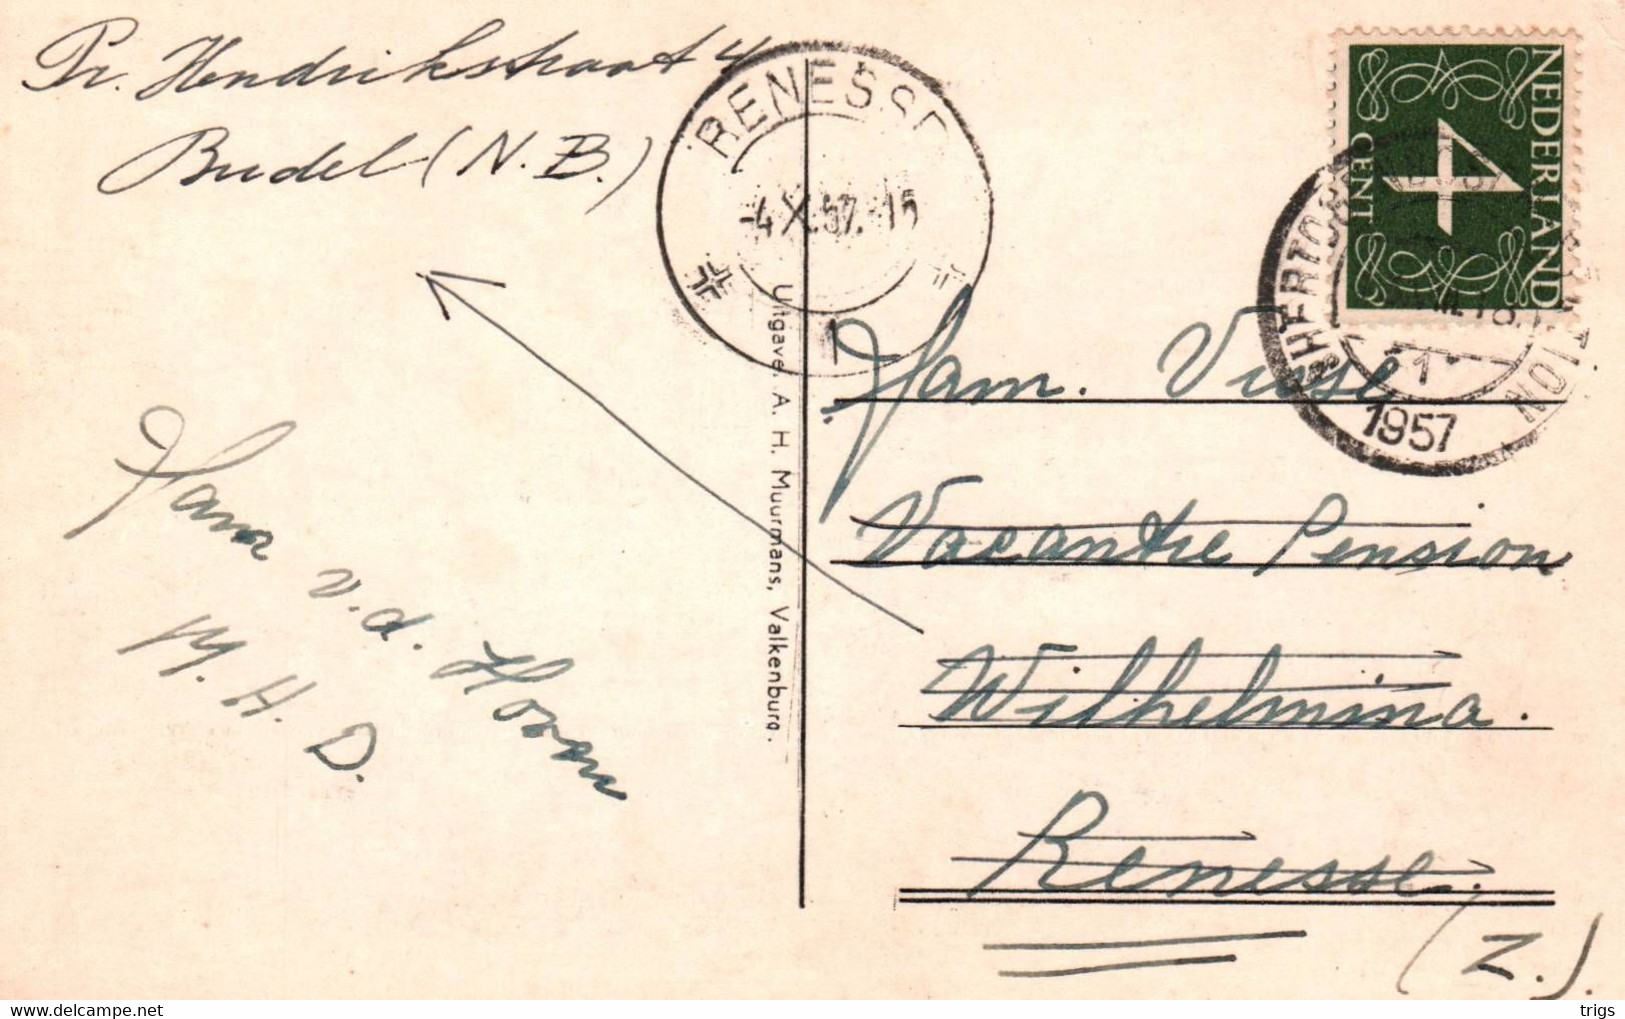 Pr. Hendrikstraat 4
Budel (N.B.)
RENESSE
-4.X.57.-15
1
NEDERLAND
4
CENT
SHERTOG
STATION
1
1957
Uitgave: A. H. Muurmans, Valkenburg.
Fam. Visse
Vacantie Pension
Wilhelmina.
Renesse.
(Z.).
Fam v.d. Hoorn
M.H.D.
delcampe.net
trigs